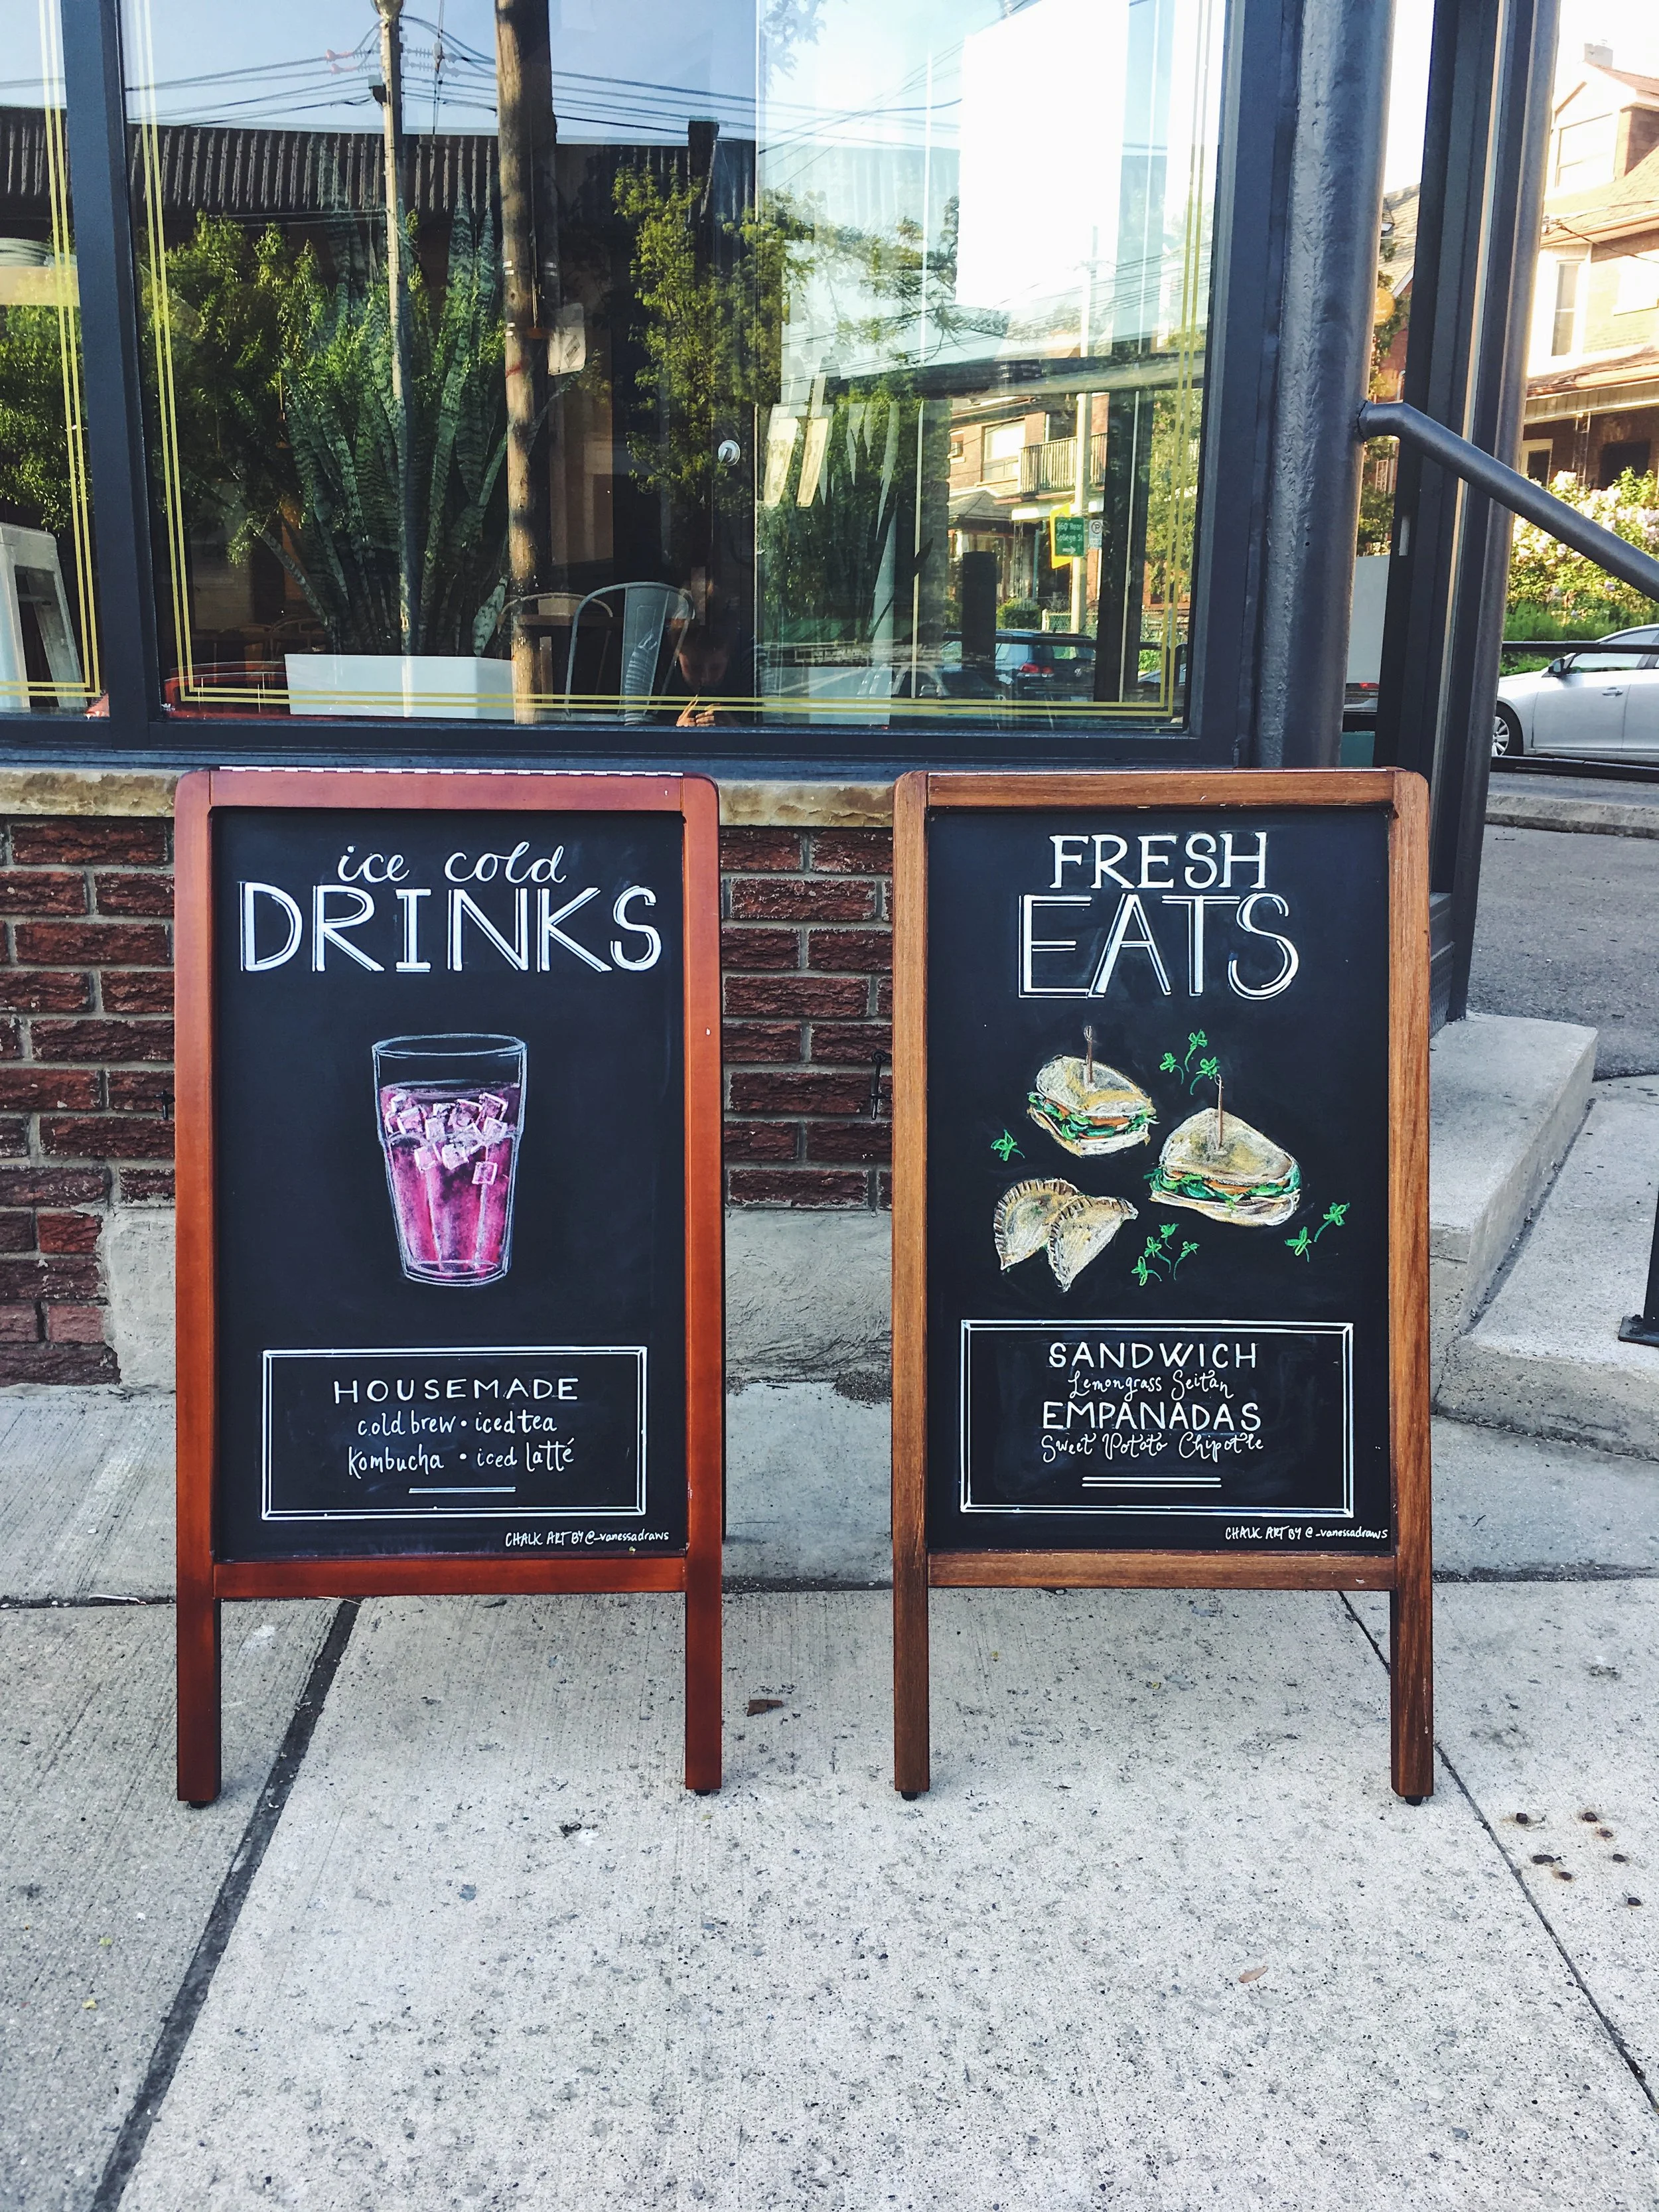 ice cold
DRINKS
HOUSEMADE
cold brew • iced tea
Kombucha • iced latté
CHALK ART BY @_vanessadraws
FRESH
EATS
SANDWICH
Lemongrass Seitan
EMPANADAS
Sweet Potato Chipotle
CHALK ART BY @_vanessadraws
College St